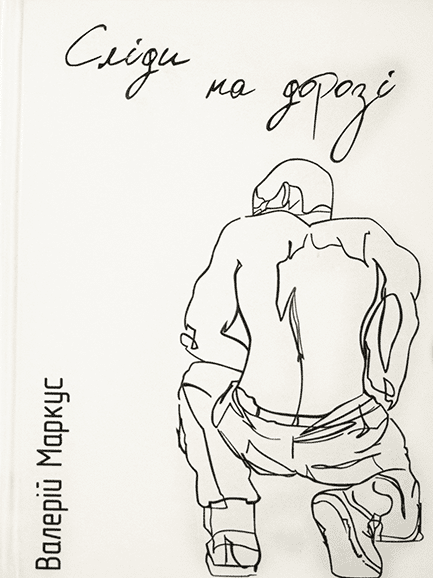 Сліди
на дорозі
Валерій Маркус